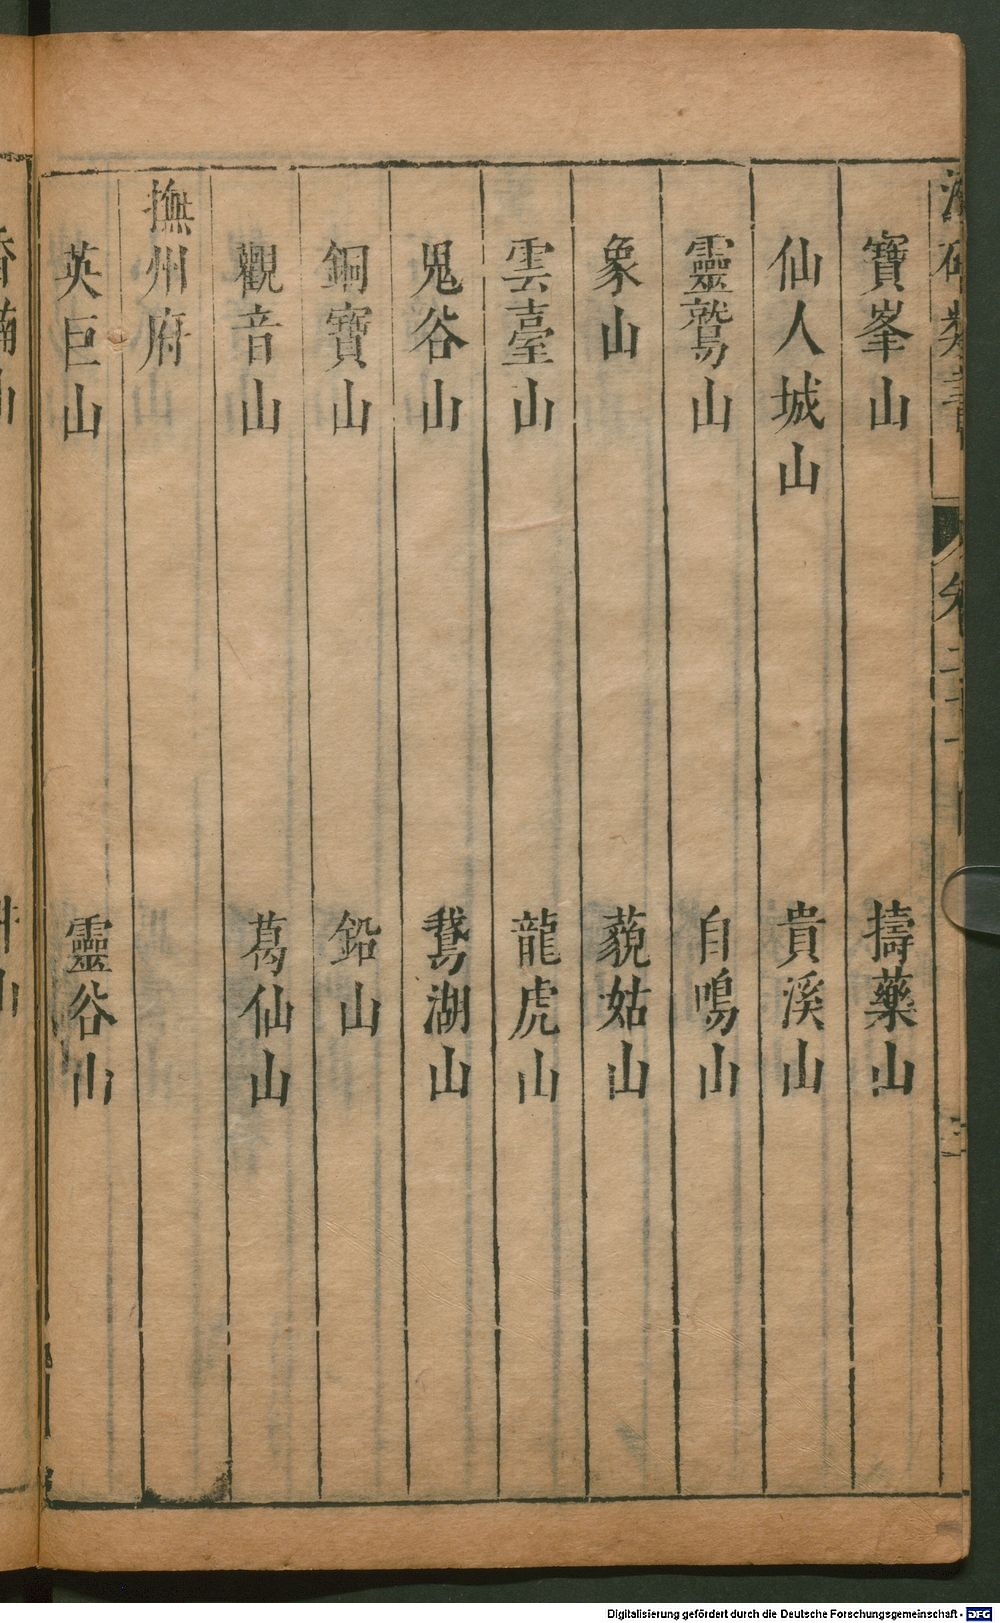 寶峯山 擣藥山
仙人城山 貴溪山
靈鷲山 自鳴山
象山 藐姑山
雲臺山 龍虎山
鬼谷山 鵞湖山
銅寶山 鉛山
觀音山 葛仙山
撫州府
英巨山 靈谷山
Digitalisierung gefördert durch die Deutsche Forschungsgemeinschaft - DFG